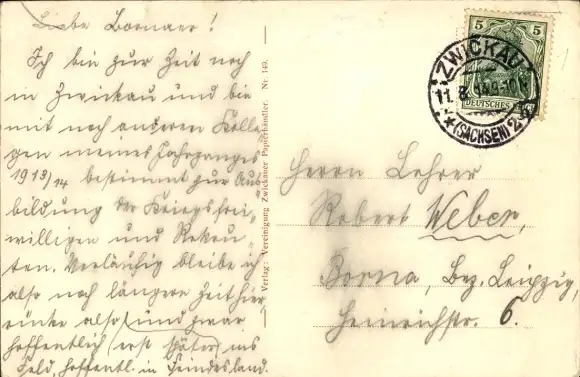 Liebe Bornaer!
Ich bin zur Zeit noch
in Zwickau und bin
mit noch anderen Kolle-
gen meines Jahrganges
1913/14 bestimmt zur Aus-
bildung der Kriegsfrei-
willigen und Rekru-
ten. Vorläufig bleibe ich
also noch längere Zeit hier,
rücke also (und zwar
hoffentlich) erst später ins
Feld, hoffentl. in Feindesland.
Verlag: Vereinigung Zwickauer Papierhändler. Nr. 149.
5 5
DEUTSCHES
ZWICKAU
11.8.14.9-10V
* (SACHSEN) 2
Herrn Lehrer
Robert Weber,
Borna, Bez. Leipzig,
Heinrichstr. 6.